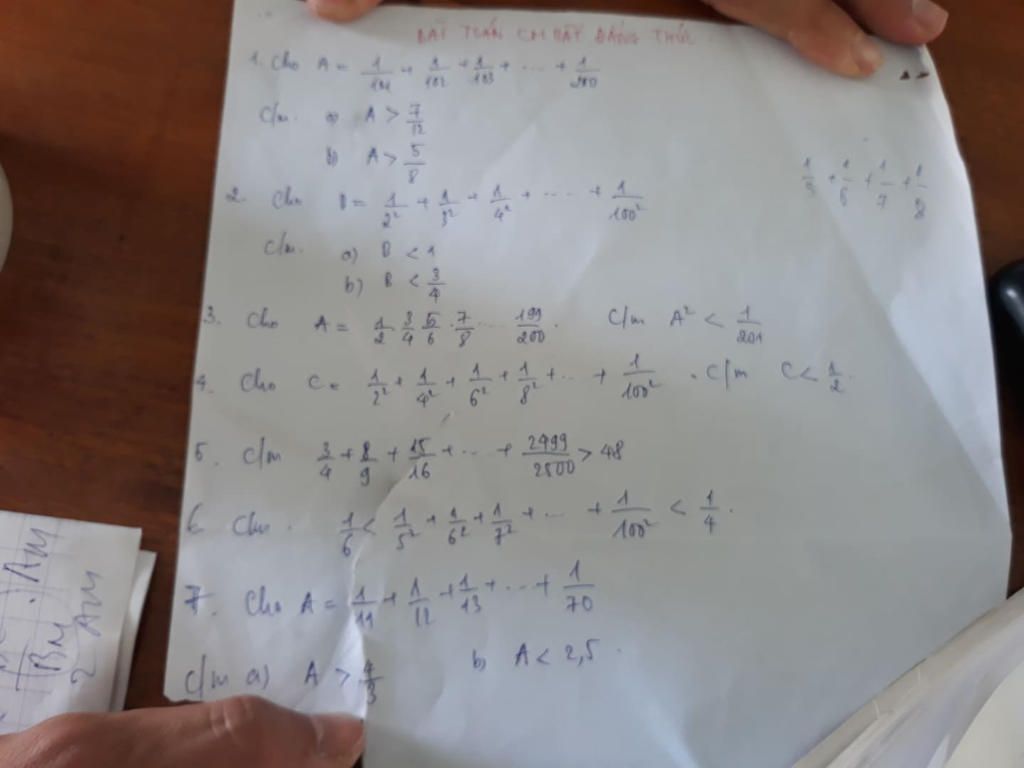 BÀI TOÁN CM BẤT ĐẲNG THỨC
1. Cho A = 1/101 + 1/102 + 1/103 + ... + 1/200
C/m. a) A > 7/12
b) A > 5/8
1/5 + 1/6 + 1/7 + 1/8
2. Cho B = 1/2² + 1/3² + 1/4² + ... + 1/100²
C/m. a) B < 1
b) B < 3/4
3. Cho A = 1/2 . 3/4 . 5/6 . 7/8 ... 199/200 . C/m A² < 1/201
4. Cho C = 1/2² + 1/4² + 1/6² + 1/8² + ... + 1/100² . C/m C < 1/2 .
5. C/m 3/4 + 8/9 + 15/16 + ... + 2499/2500 > 48
6 Cho . 1/6 < 1/5² + 1/6² + 1/7² + ... + 1/100² < 1/4 .
7. Cho A = 1/11 + 1/12 + 1/13 + ... + 1/70
C/m a) A > 4/3 b) A < 2,5 .
BM . AM
2 AM